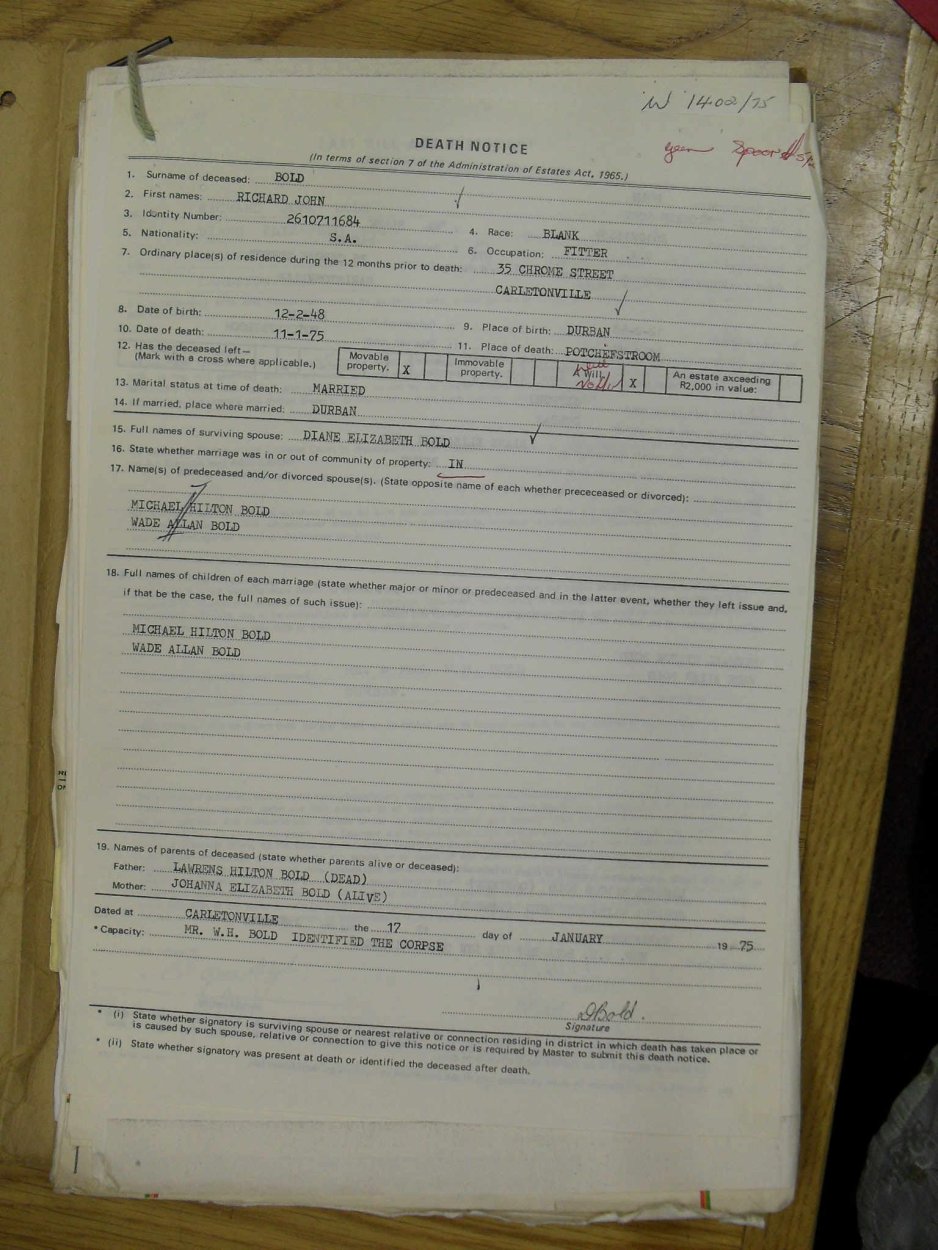 W 1402/75
geen Spoor
DEATH NOTICE
(In terms of section 7 of the Administration of Estates Act, 1965.)
1. Surname of deceased: BOLD
2. First names: RICHARD JOHN
3. Identity Number: 2610711684 4. Race: BLANK
5. Nationality: S.A. 6. Occupation: FITTER
7. Ordinary place(s) of residence during the 12 months prior to death: 35 CHROME STREET
CARLETONVILLE
8. Date of birth: 12-2-48 9. Place of birth: DURBAN
10. Date of death: 11-1-75 11. Place of death: POTCHEFSTROOM
12. Has the deceased left—
(Mark with a cross where applicable.) Movable property. X Immovable property. A Will. X An estate exceeding R2,000 in value:
13. Marital status at time of death: MARRIED
14. If married, place where married: DURBAN
15. Full names of surviving spouse: DIANE ELIZABETH BOLD
16. State whether marriage was in or out of community of property: IN
17. Name(s) of predeceased and/or divorced spouse(s). (State opposite name of each whether prececeased or divorced):
MICHAEL HILTON BOLD
WADE ALLAN BOLD
18. Full names of children of each marriage (state whether major or minor or predeceased and in the latter event, whether they left issue and,
if that be the case, the full names of such issue):
MICHAEL HILTON BOLD
WADE ALLAN BOLD
19. Names of parents of deceased (state whether parents alive or deceased):
Father: LAWRENS HILTON BOLD (DEAD)
Mother: JOHANNA ELIZABETH BOLD (ALIVE)
Dated at CARLETONVILLE the 17 day of JANUARY 19 75
* Capacity: MR. W.H. BOLD IDENTIFIED THE CORPSE
DBold.
Signature
* (i) State whether signatory is surviving spouse or nearest relative or connection residing in district in which death has taken place or
is caused by such spouse, relative or connection to give this notice or is required by Master to submit this death notice.
* (ii) State whether signatory was present at death or identified the deceased after death.